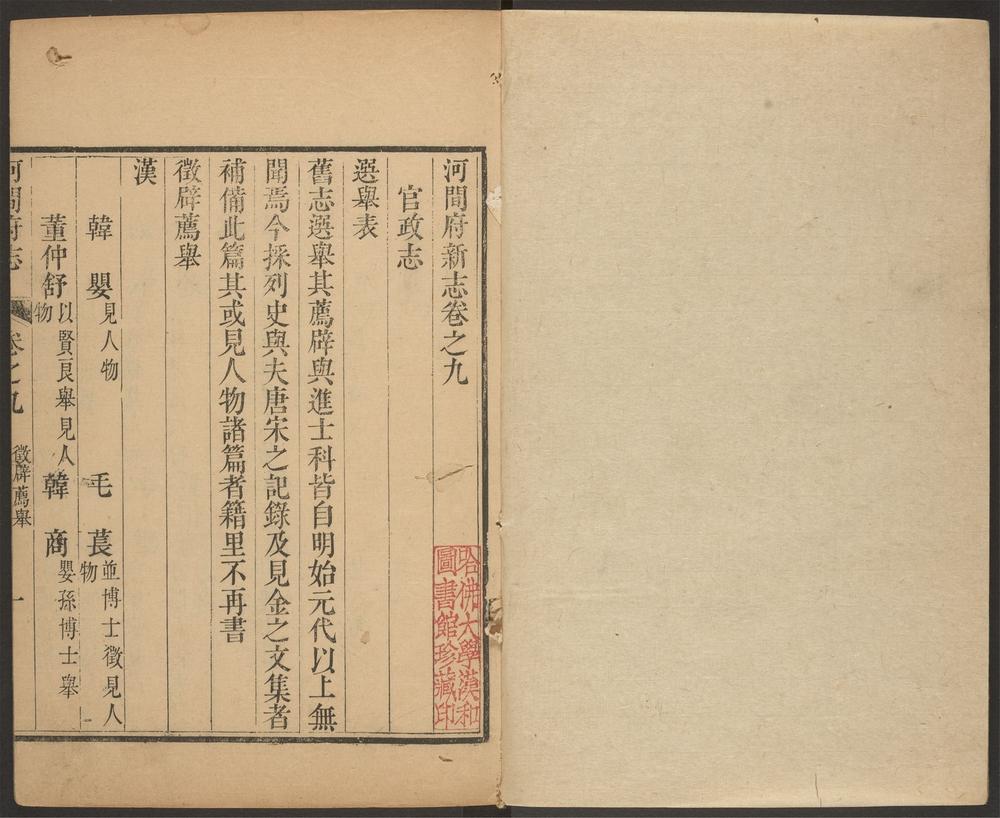 河間府新志卷之九
官政志
選舉表
舊志選舉其薦辟與進士科皆自明始元代以上無
聞焉今採列史與夫唐宋之記錄及見金之文集者
補備此篇其或見人物諸篇者籍里不再書
徵辟薦舉
漢
韓嬰見人物 毛萇並博士徵見人物
董仲舒以賢良舉見人物 韓商嬰孫博士舉
河間府志 卷之九 徵辟薦舉 一
哈佛大學漢和
圖書館珍藏印